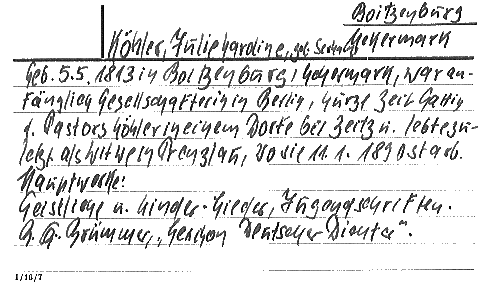 Boitzenburg
Uckermark
Köhler, Julie Nardine, geb.
Geb. 5.5.1813 in Boitzenburg, Uckermark, war an-
fänglich Gesellschafterin in Berlin, kurze Zeit Gattin
d. Pastors Köhler in einem Dorfe bei Zeitz u. lebte zu-
letzt als Witwe in Prenzlau, wo sie 11.1.1890 starb.
Hauptwerke:
Geistliche u. Kinder-Lieder, Jugendschriften.
Brümmer, „Lexikon Deutscher Dichter".
1/16/7